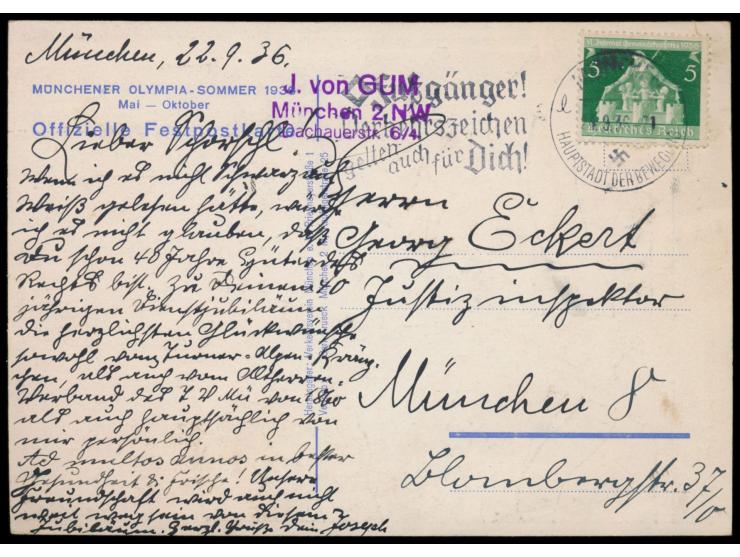 München, 22.9.36.
MÜNCHENER OLYMPIA-SOMMER 1936
Mai — Oktober
Offizielle Festpostkarte
J. von GUM
München 2 NW
Dachauerstr. 6/4
Fußgänger!
Verkehrszeichen
gelten auch für Dich!
HAUPTSTADT DER BEWEG
5 5
Deutsches Reich
Lieber Schorschl
Wenn ich es nicht Schwarz auf
Weiß gelesen hätte, würde
ich es nicht glauben, daß
Du schon 40 Jahre Hüter des
Rechts bist. Zu Deinem 40
jährigen Dienstjubiläum
die herzlichsten Glückwünsche
sowohl vom Turner-Alpen-Kränz-
chen, als auch vom Altherrn-
Verband des T V Mü von 1860
als auch hauptsächlich von
mir persönlich.
Ad multos annos in bester
Gesundheit & Frische! Unsere
Freundschaft wird auch nicht
weit weg sein von diesem
Jubiläum. Herzl. Grüße Dein Joseph
Herrn
Georg Eckert
Justizinspektor
München 8
Blombergstr. 37/0